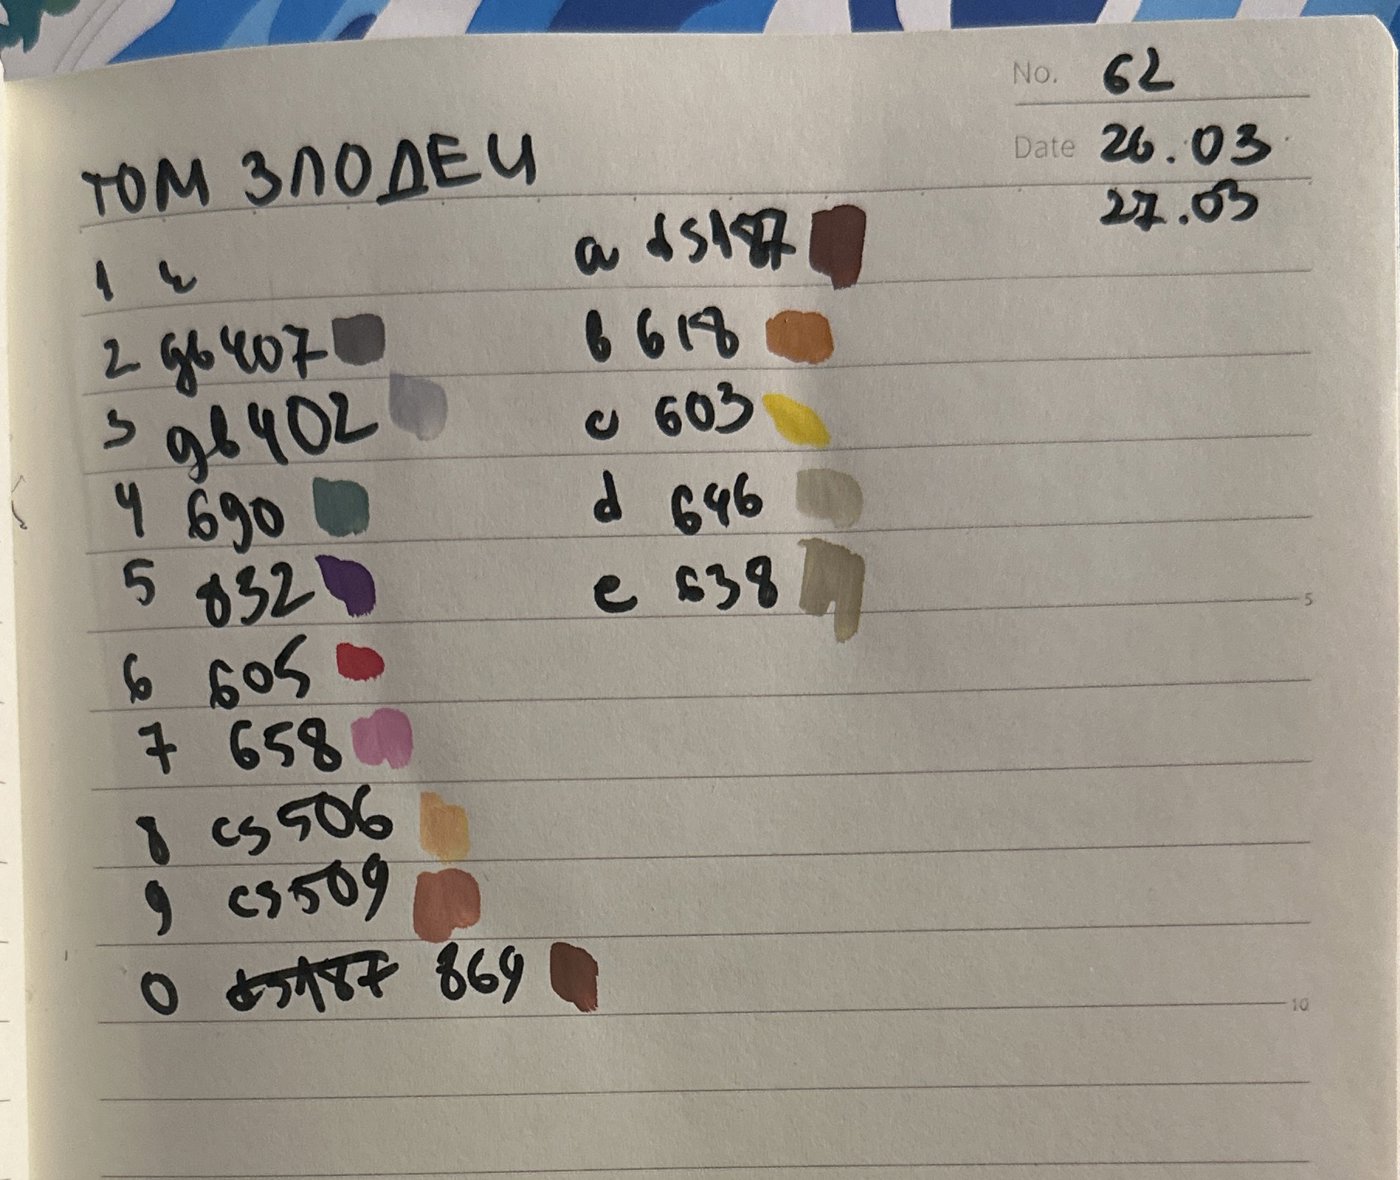 No. 62
Date 26.03
27.03
ТОМ ЗЛОДЕЙ
1 ч
2 gb407
3 gb402
4 690
5 832
6 605
7 658
8 cs506
9 cs509
0 ds187 869
a ds187
b 618
c 603
d 646
e 638
5
10